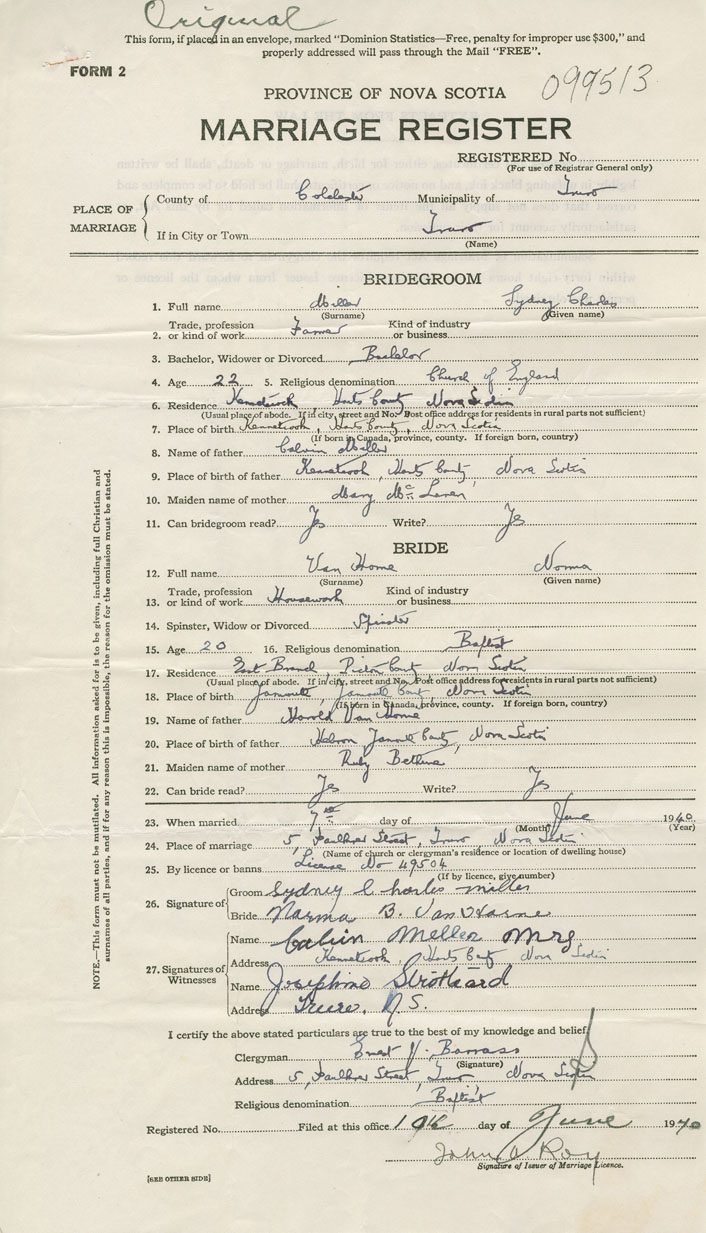 Original
This form, if placed in an envelope, marked "Dominion Statistics—Free, penalty for improper use $300," and
properly addressed will pass through the Mail "FREE".
FORM 2
099513
PROVINCE OF NOVA SCOTIA
MARRIAGE REGISTER
REGISTERED No.
(For use of Registrar General only)
PLACE OF MARRIAGE
County of Colchester Municipality of Truro
If in City or Town Truro
(Name)
BRIDEGROOM
1. Full name Miller Sydney Charles
(Surname) (Given name)
2. Trade, profession or kind of work Farmer Kind of industry or business
3. Bachelor, Widower or Divorced Bachelor
4. Age 22 5. Religious denomination Church of England
6. Residence Kennetcook, Hants County Nova Scotia
(Usual place of abode. If in city, street and No. Post office address for residents in rural parts not sufficient)
7. Place of birth Kennetcook, Hants County, Nova Scotia
(If born in Canada, province, county. If foreign born, country)
8. Name of father Calvin Miller
9. Place of birth of father Kennetcook, Hants County, Nova Scotia
10. Maiden name of mother Mary
11. Can bridegroom read? Yes Write? Yes
BRIDE
12. Full name Van Horne Norma
(Surname) (Given name)
13. Trade, profession or kind of work Housework Kind of industry or business
14. Spinster, Widow or Divorced Spinster
15. Age 20 16. Religious denomination Baptist
17. Residence East Branch, Pictou County Nova Scotia
(Usual place of abode. If in city, street and No. Post office address for residents in rural parts not sufficient)
18. Place of birth Nova Scotia
(If born in Canada, province, county. If foreign born, country)
19. Name of father Harold Van Horne
20. Place of birth of father Hebron County, Nova Scotia
21. Maiden name of mother Ruby
22. Can bride read? Yes Write? Yes
23. When married 7th day of June 1940
(Month) (Year)
24. Place of marriage 5, Faulkner Street, Truro Nova Scotia
(Name of church or clergyman's residence or location of dwelling house)
25. By licence or banns License No 49504
(If by licence, give number)
26. Signature of
Groom Sydney Charles Miller
Bride Norma B. Van Horne
27. Signatures of Witnesses
Name Calvin Miller Mrs
Address Kennetcook, Hants County Nova Scotia
Name Josephine Stothard
Address Truro, N.S.
I certify the above stated particulars are true to the best of my knowledge and belief.
Clergyman Ernest
(Signature)
Address 5, Faulkner Street, Truro Nova Scotia
Religious denomination Baptist
Registered No. Filed at this office day of June 1940
John A Roy
Signature of Issuer of Marriage Licence.
[SEE OTHER SIDE]
NOTE.—This form must not be mutilated. All information asked for is to be given, including full Christian and
surnames of all parties, and if for any reason this is impossible, the reason for the omission must be stated.